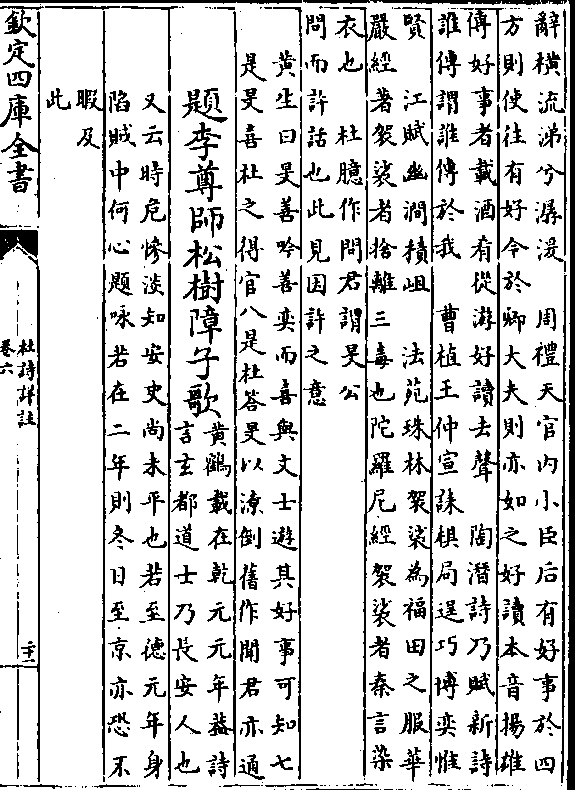 辭橫流涕兮潺湲　周禮天官内小臣后有好事於四
方則使往有好令於卿大夫則亦如之好讀本音揚雄
傳好事者載酒肴從游好讀去聲　陶潛詩乃賦新詩
誰傳謂誰傳於我　曹植王仲宣誄棋局逞巧博奕惟
賢　江賦幽澗積岨　法苑珠林袈裟為福田之服華
嚴經著袈裟者捨離三毒也陀羅尼經袈裟者秦言染
衣也　杜臆作問君謂旻公
問而許話也此見因許之意
黄生曰旻善吟善奕而喜與文士遊其好事可知七
是旻喜杜之得官八是杜答旻以潦倒舊作聞君亦通
題李尊師松樹障子歌
黄鶴載在乾元元年葢詩
言玄都道士乃長安人也
又云時危慘淡知安史尚未平也若至德元年身
陷賊中何心題咏若在二年則冬日至京亦恐不
暇及
此
欽定四庫全書
杜詩詳註
卷六
二十二